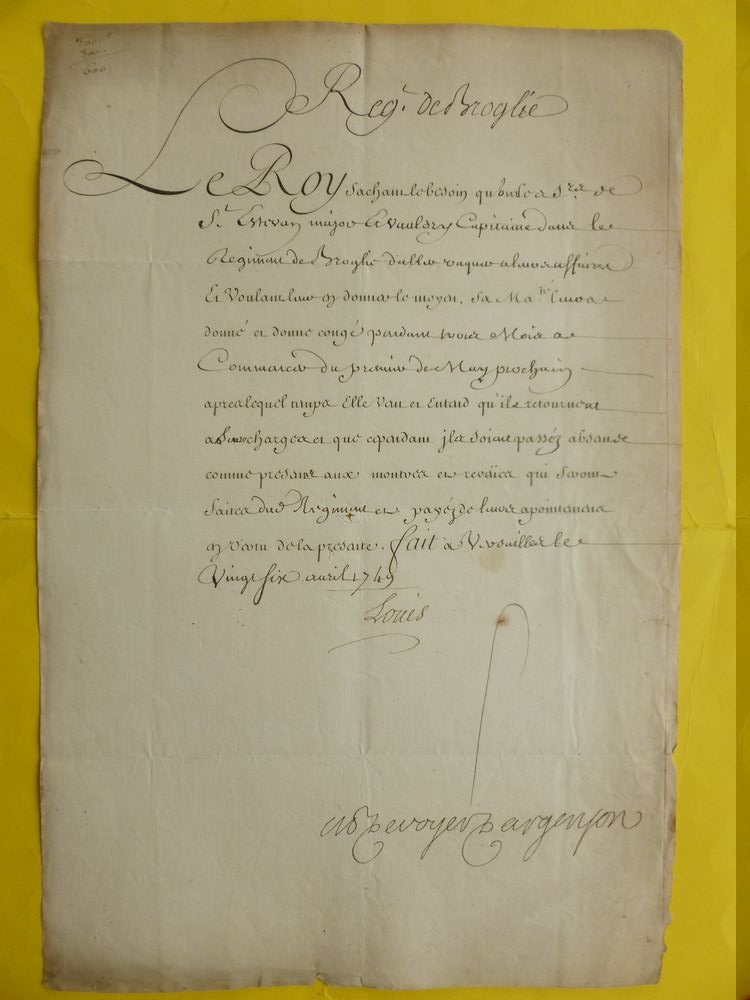 300.
300.
600
Reg.t de Broglie
Le Roy sachant le besoin qu'ont les S.rs de
S.t Estevan major Et Vauldry Capitaine dans le
Regiment de Broglie d'aller vaquer a leurs affaires
Et Voulant leur en donner le moyen, Sa Ma.té leur a
donné et donne congé pendant trois Mois a
Commancer du premier de May prochain
apres lequel temps Elle Veut et Entend qu'ils retournent
a leurs charges et que cependant jls soient passéz absens
comme presens aux montres et reveües qui seront
faites dud. Regiment et payéz de leurs apointemens
en vertu de la presente. fait a Versailles le
Vingt six avril 1749
Louis
De voyer D'argenson